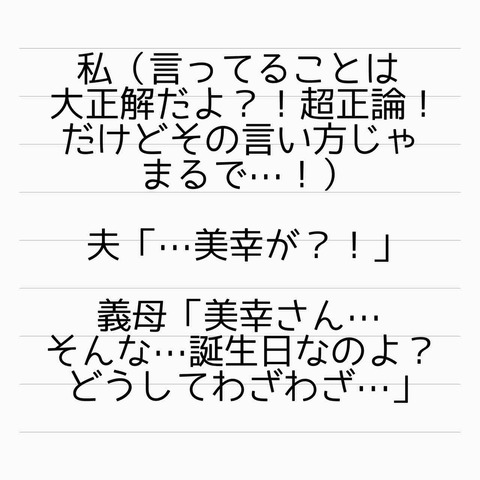 私（言ってることは
大正解だよ？！超正論！
だけどその言い方じゃ
まるで…！）
夫「…美幸が？！」
義母「美幸さん…
そんな…誕生日なのよ？
どうしてわざわざ…」